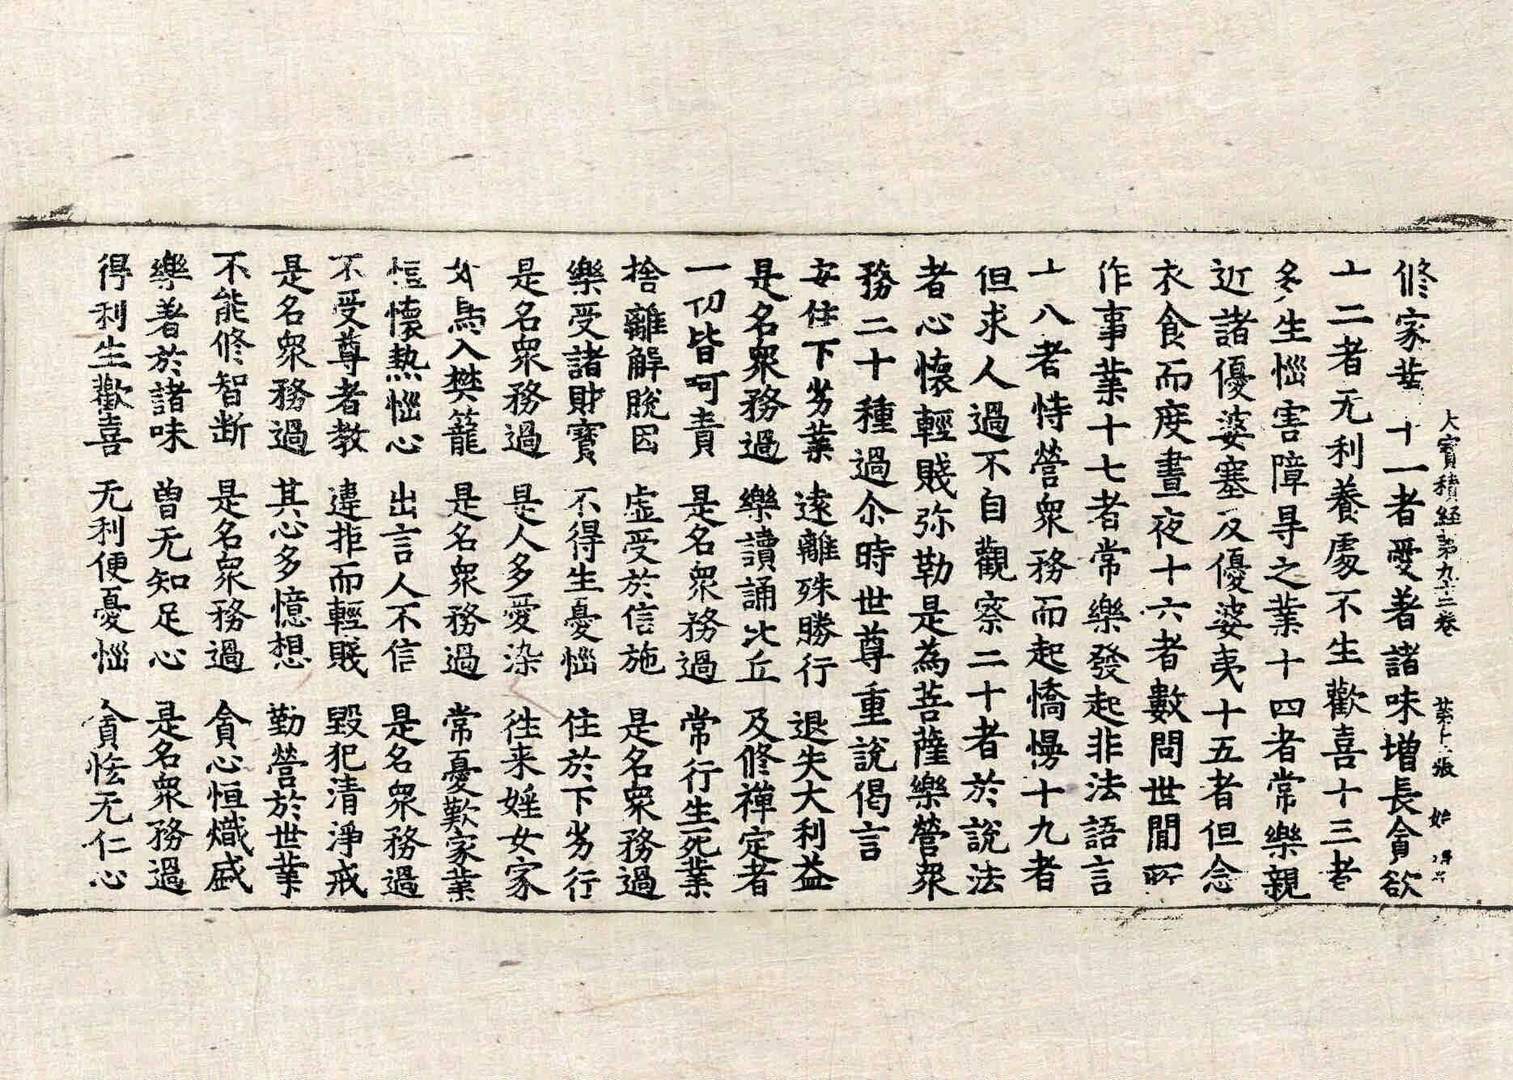 大寶積經第九十二卷 第十張 始
修家業十一者愛著諸味增長貪欲
十二者无利養處不生歡喜十三者
多生惱害障㝵之業十四者常樂親
近諸優婆塞及優婆夷十五者但念
衣食而度晝夜十六者數問世間所
作事業十七者常樂發起非法語言
十八者恃營衆務而起憍慢十九者
但求人過不自觀察二十者於說法
者心懷輕賤弥勒是為菩薩樂營衆
務二十種過尒時世尊重說偈言
安住下劣業 遠離殊勝行 退失大利益
是名衆務過 樂讀誦比丘 及修禪定者
一切皆呵責 是名衆務過 常行生死業
捨離解脫因 虛受於信施 是名衆務過
樂受諸財寶 不得生憂惱 住於下劣行
是名衆務過 是人多愛染 往来婬女家
如鳥入樊籠 是名衆務過 常憂歎家業
恒懷熱惱心 出言人不信 是名衆務過
不受尊者教 違拒而輕賤 毀犯清淨戒
是名衆務過 其心多憶想 勤營於世業
不能修智斷 是名衆務過 貪心恒熾盛
樂著於諸味 曾无知足心 是名衆務過
得利生歡喜 无利便憂惱 貪恡无仁心